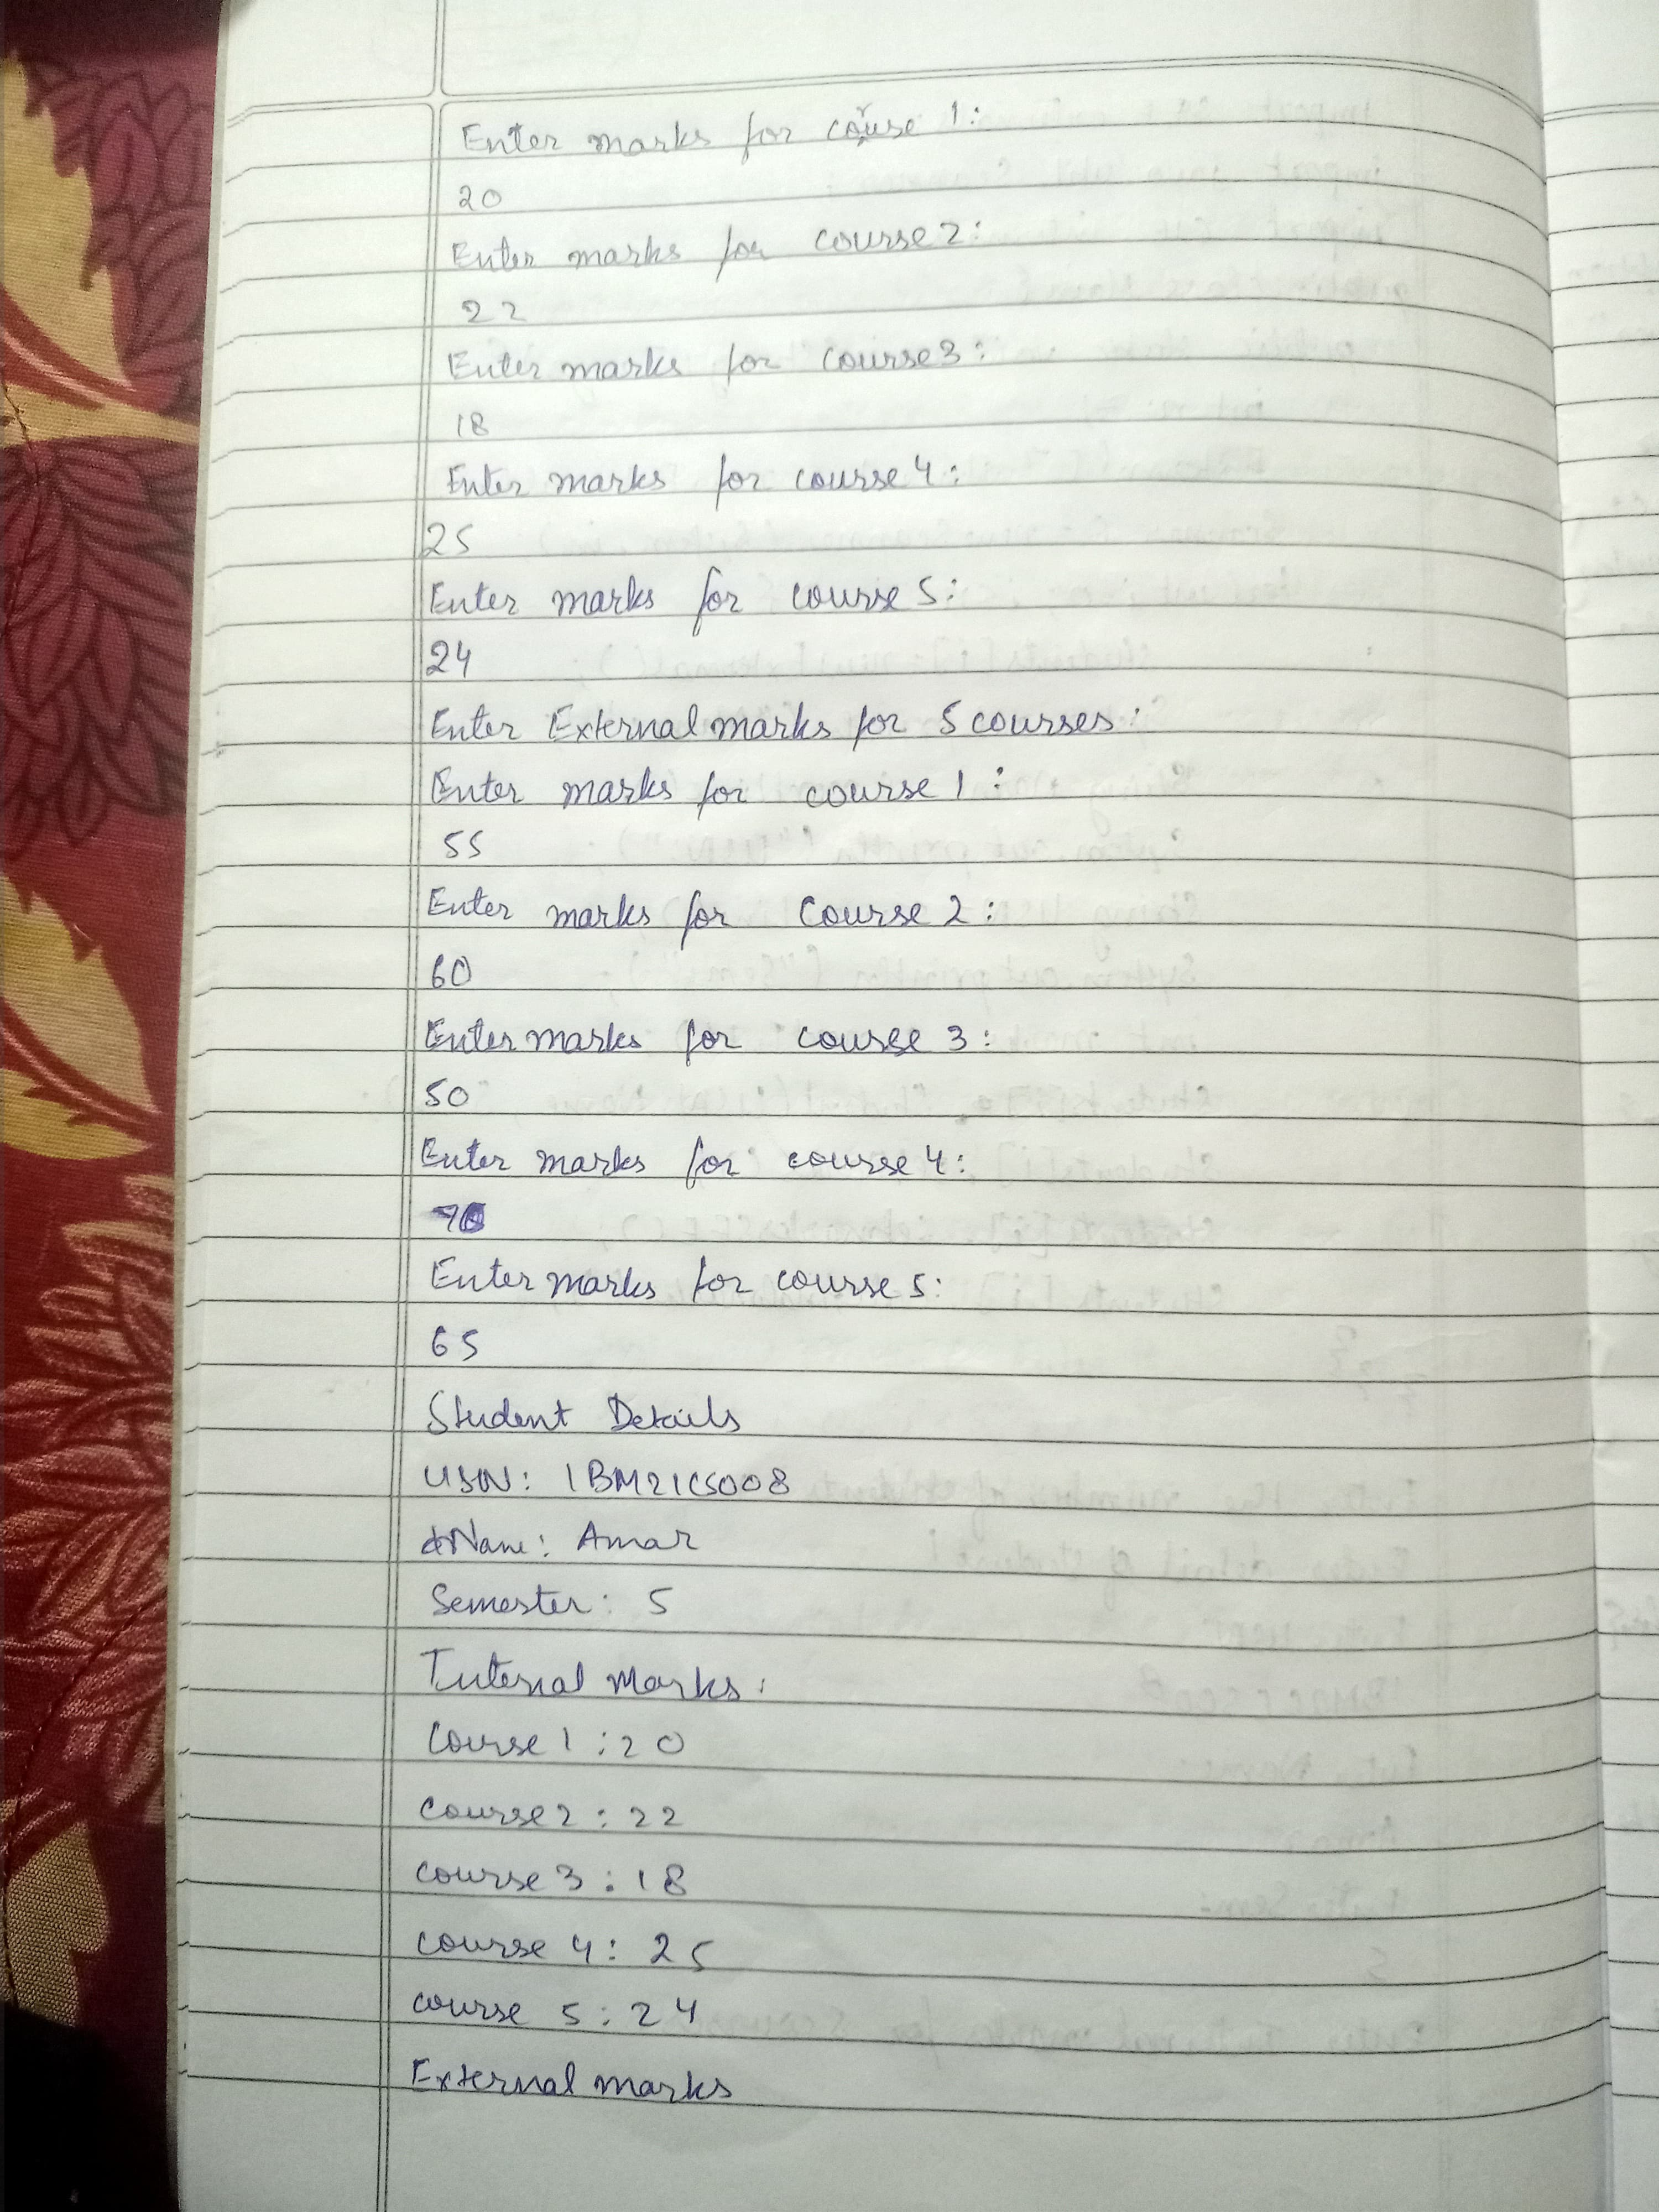 Enter marks for course 1:
20
Enter marks for course 2:
22
Enter marks for course 3:
18
Enter marks for course 4:
25
Enter marks for course 5:
24
Enter External marks for 5 courses:
Enter marks for course 1:
55
Enter marks for Course 2:
60
Enter marks for course 3:
50
Enter marks for course 4:
70
Enter marks for course 5:
65
Student Details
USN: 1BM21CS008
Name: Amar
Semester: 5
Internal Marks:
Course 1 : 20
Course 2 : 22
course 3 : 18
course 4 : 25
course 5 : 24
External marks